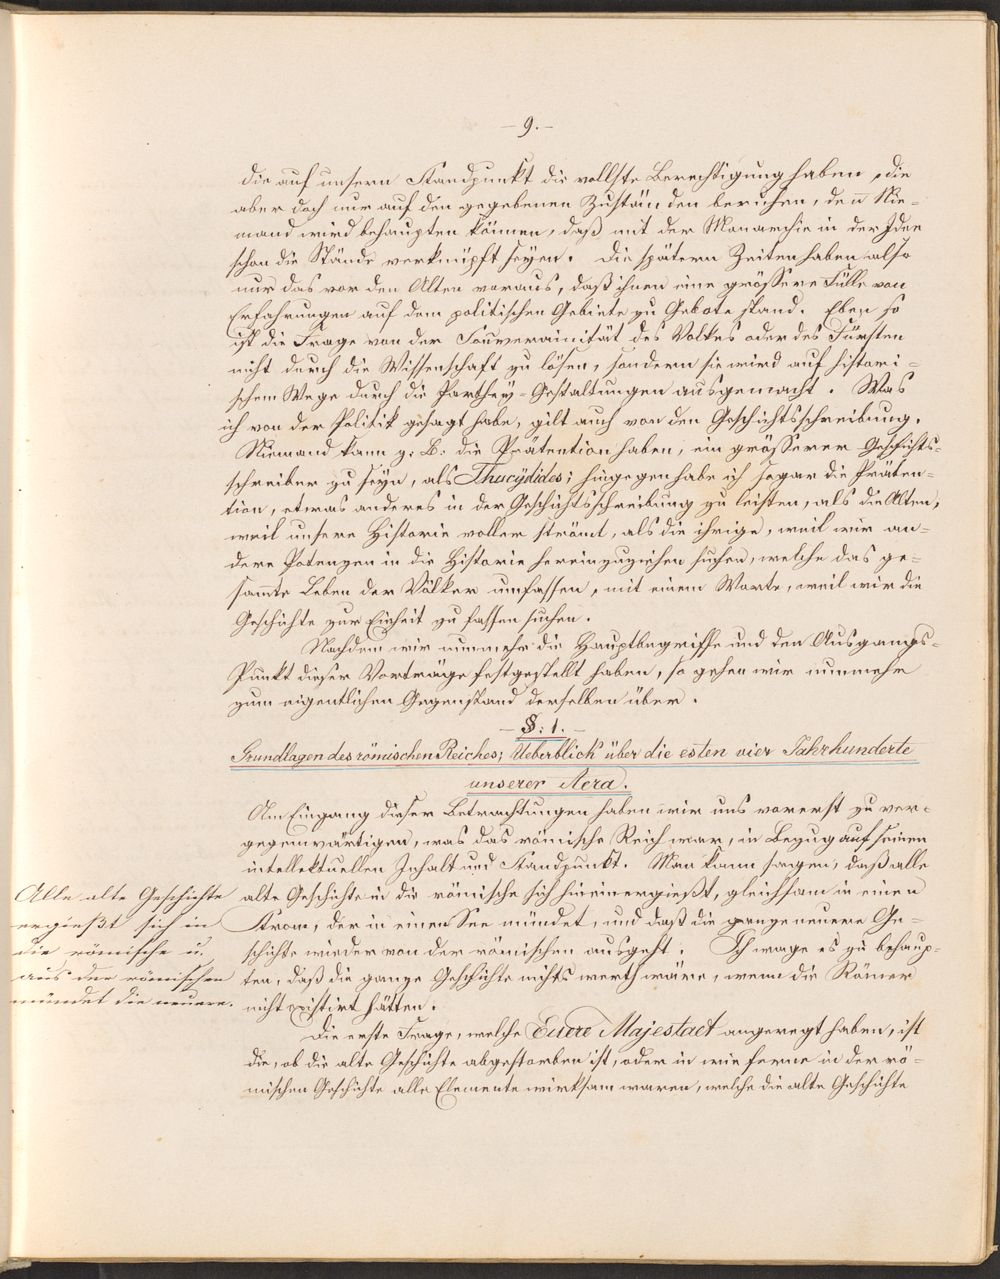 – 9. –
die auf unsern Standpunkt die vollste Berechtigung haben, die
aber doch nur auf den gegebenen Zuständen beruhen, den̅ Nie-
mand wird behaupten können, daß mit der Monarchie in der Idee
schon die Stände verknüpft seyen. Die spätern Zeiten haben also
nur das vor den Alten voraus, daß ihnen eine grössere Fülle von
Erfahrungen auf dem politischen Gebiete zu Gebote stand. Eben so
ist die Frage von der Souverainität des Volkes oder des Fürsten
nicht durch die Wissenschaft zu lösen, sondern sie wird auf histori-
schem Wege durch die Parthey-Gestaltungen ausgemacht. Was
ich von der Politik gesagt habe, gilt auch von den Geschichtsschreibung.
Niemand kann z: B: die Prätention haben, ein grösserer Geschichts-
schreiber zu seyn, als Thucydides; hingegen habe ich sogar die Präten-
tion, etwas anderes in der Geschichtsschreibung zu leisten, als die Alten,
weil unsere Historie voller strömt, als die ihrige, weil wir an-
dere Potenzen in die Historie hereinzuziehen suchen, welche das ge-
sam̅te Leben der Völker umfassen, mit einem Worte, weil wir die
Geschichte zur Einheit zu fassen suchen.
Nachdem wir nunmehr die Hauptbegriffe und den Ausgangs-
Punkt dieser Vorträge festgestellt haben, so gehen wir nunmehr
zum eigentlichen Gegenstand derselben über.
– §: 1. –
Grundlagen des römischen Reiches; Ueberblick über die esten vier Jahrhunderte
unserer Aera.
Am Eingang dieser Betrachtungen haben wir uns vorerst zu ver-
gegenwärtigen, was das römische Reich war, in Bezug auf seinen
intellektuellen Inhalt und Standpunkt. Man kann sagen, daß alle
alte Geschichte in die römische sich hineinergießt, gleichsam in einen
Strom, der in einen See mündet, und daß die ganze neuere Ge-
schichte wieder von der römischen ausgeht. Ich wage es zu behaup-
ten, daß die ganze Geschichte nichts werth wäre, wenn die Römer
nicht existirt hätten.
Alle alte Geschichte
ergießt sich in
die römische u.
aus der römischen
mündet die neuere.
Die erste Frage, welche Euere Majestaet angeregt haben, ist
die, ob die alte Geschichte abgestorben ist, oder in wie ferne in der rö-
mischen Geschichte alle Elemente wirksam waren, welche die alte Geschichte